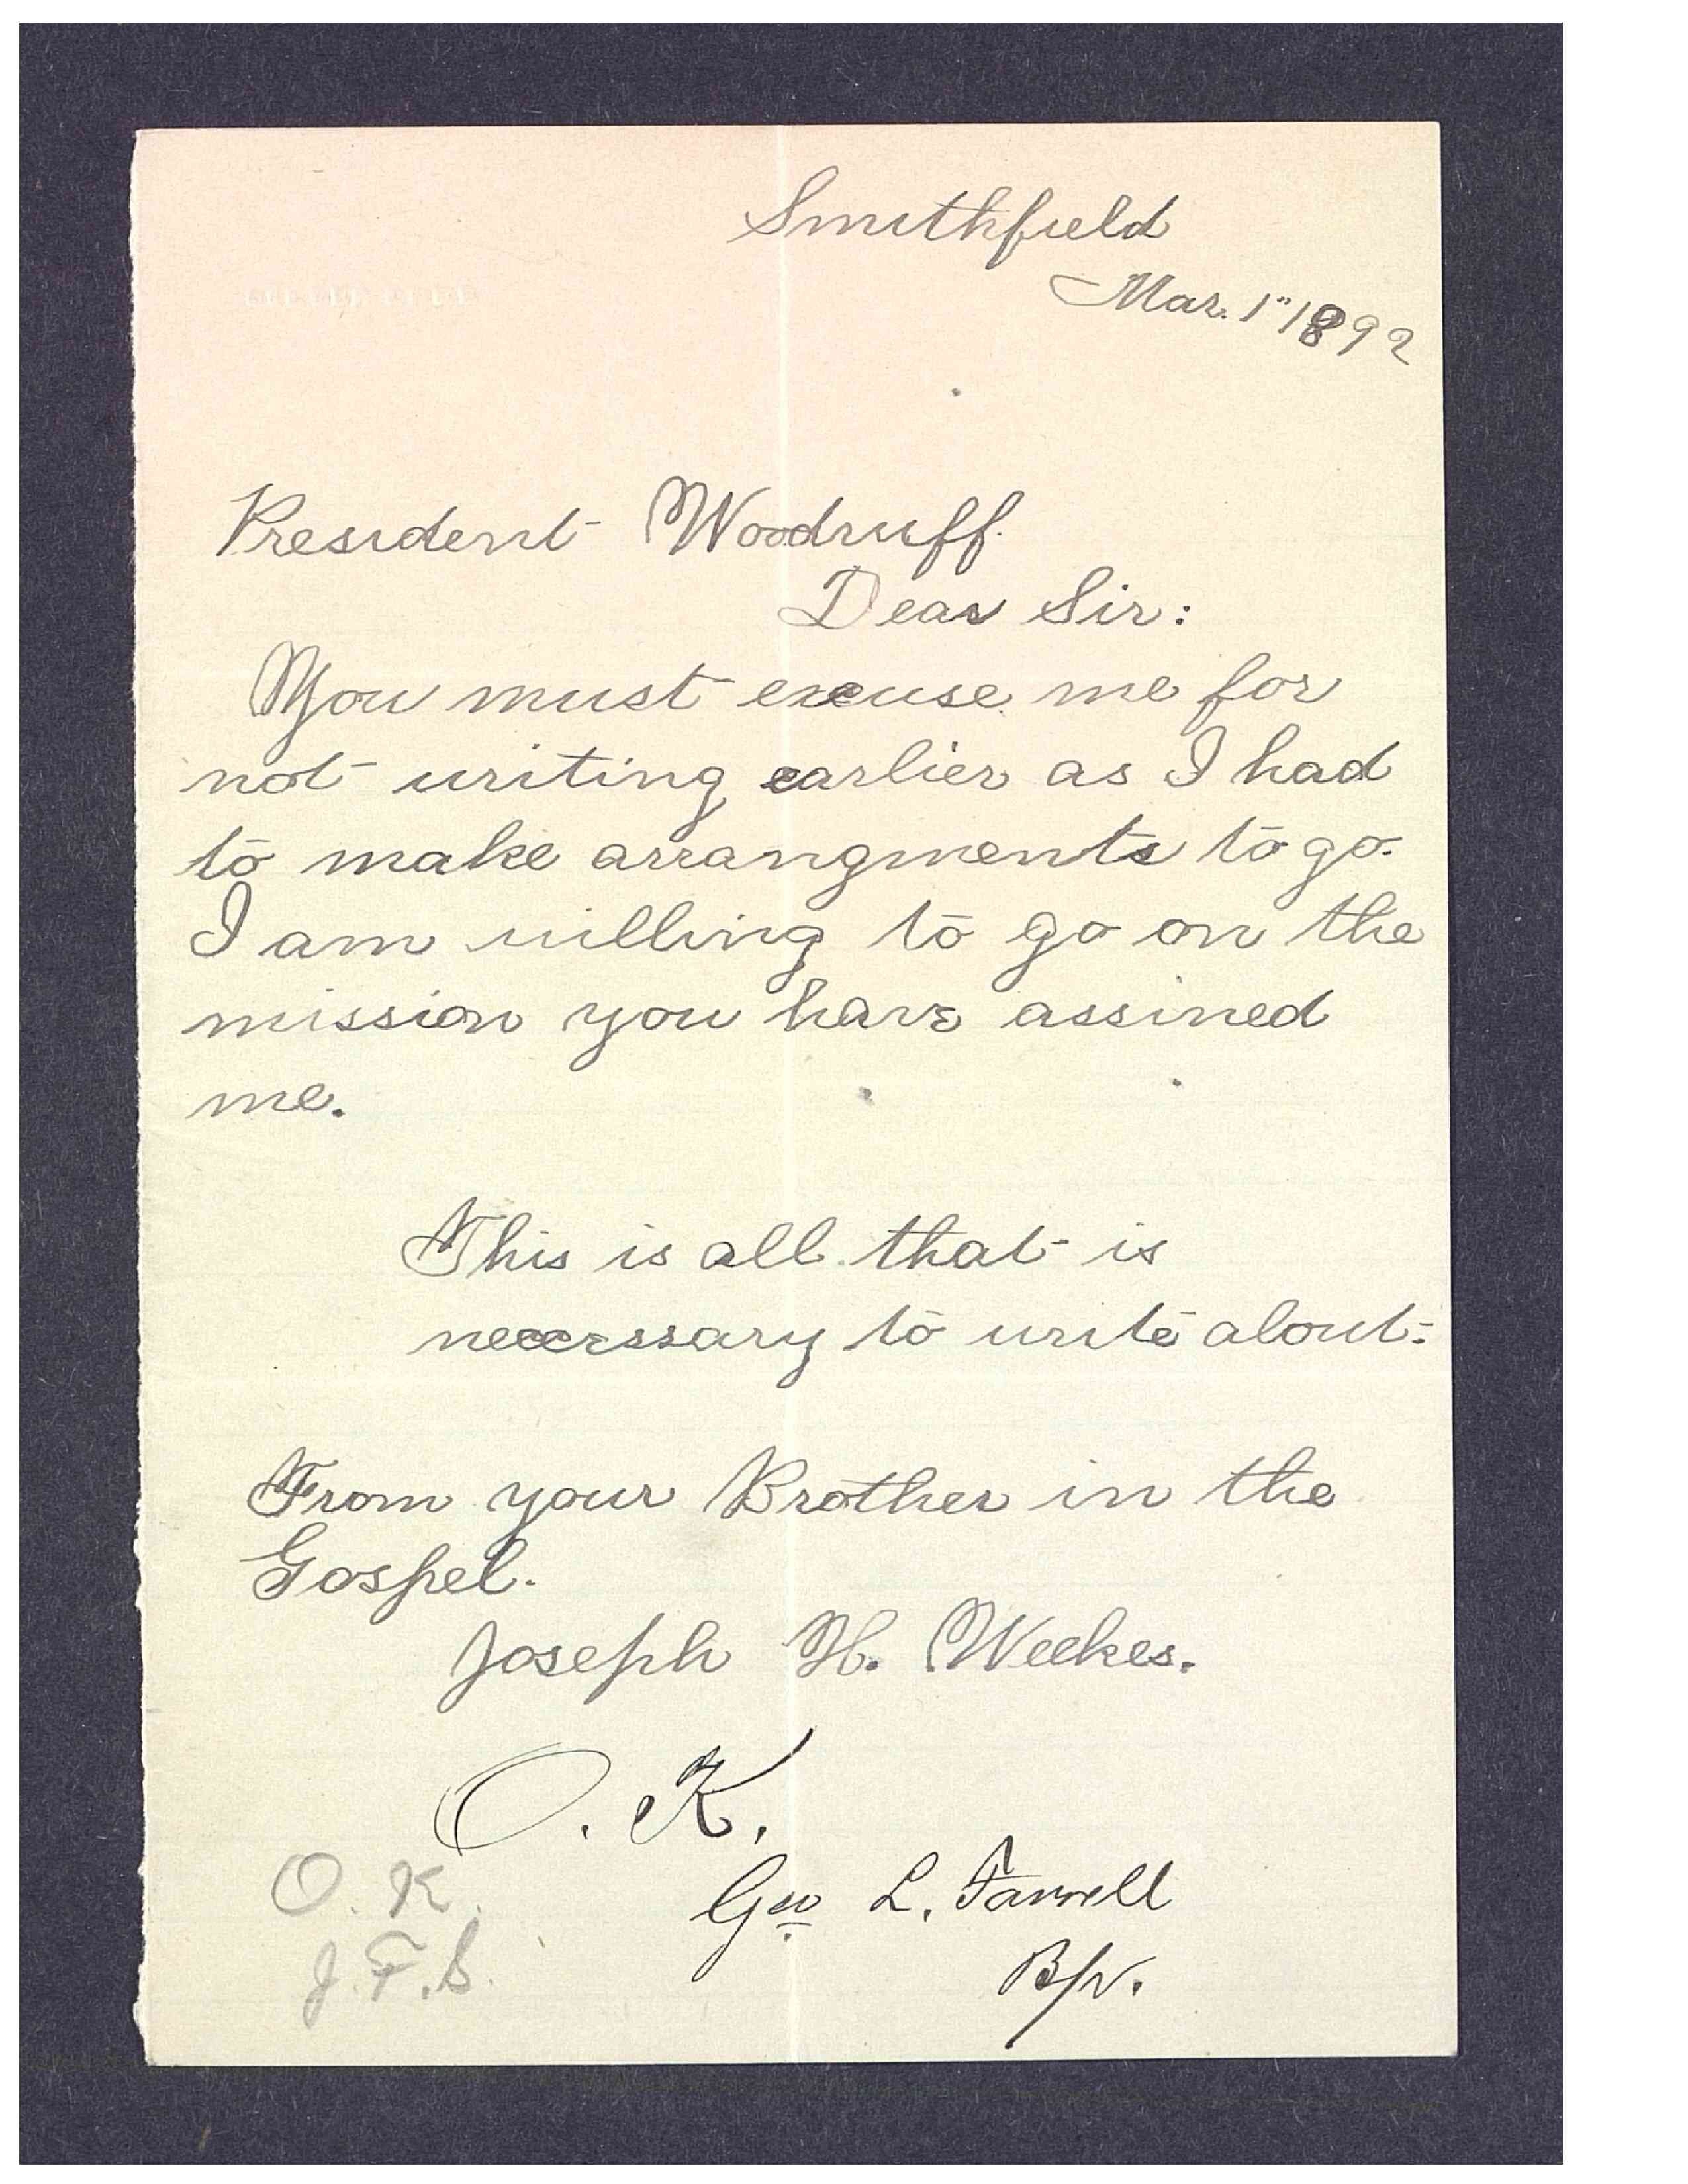 Smithfield
Mar. 1" 1892
President Woodruff.
Dear Sir:
You must excuse me for
not writing earlier as I had
to make arrangments to go.
I am willing to go on the
mission you have assined
me.
This is all that is
necerssary to write about.
From your Brother in the
Gospel.
Joseph H. Weekes.
O. K.
Geo L. Farrell
Bp.
O. K.
J. F. S.